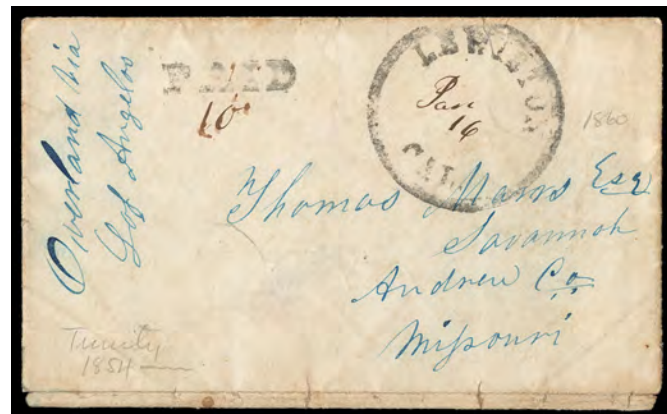 Overland via
Los Angelos
PAID
10
LEWISTON
Jan
16
CAL
1860
Thomas Esq
Savannah
Andrew Co.
Missouri
Trinity
1854